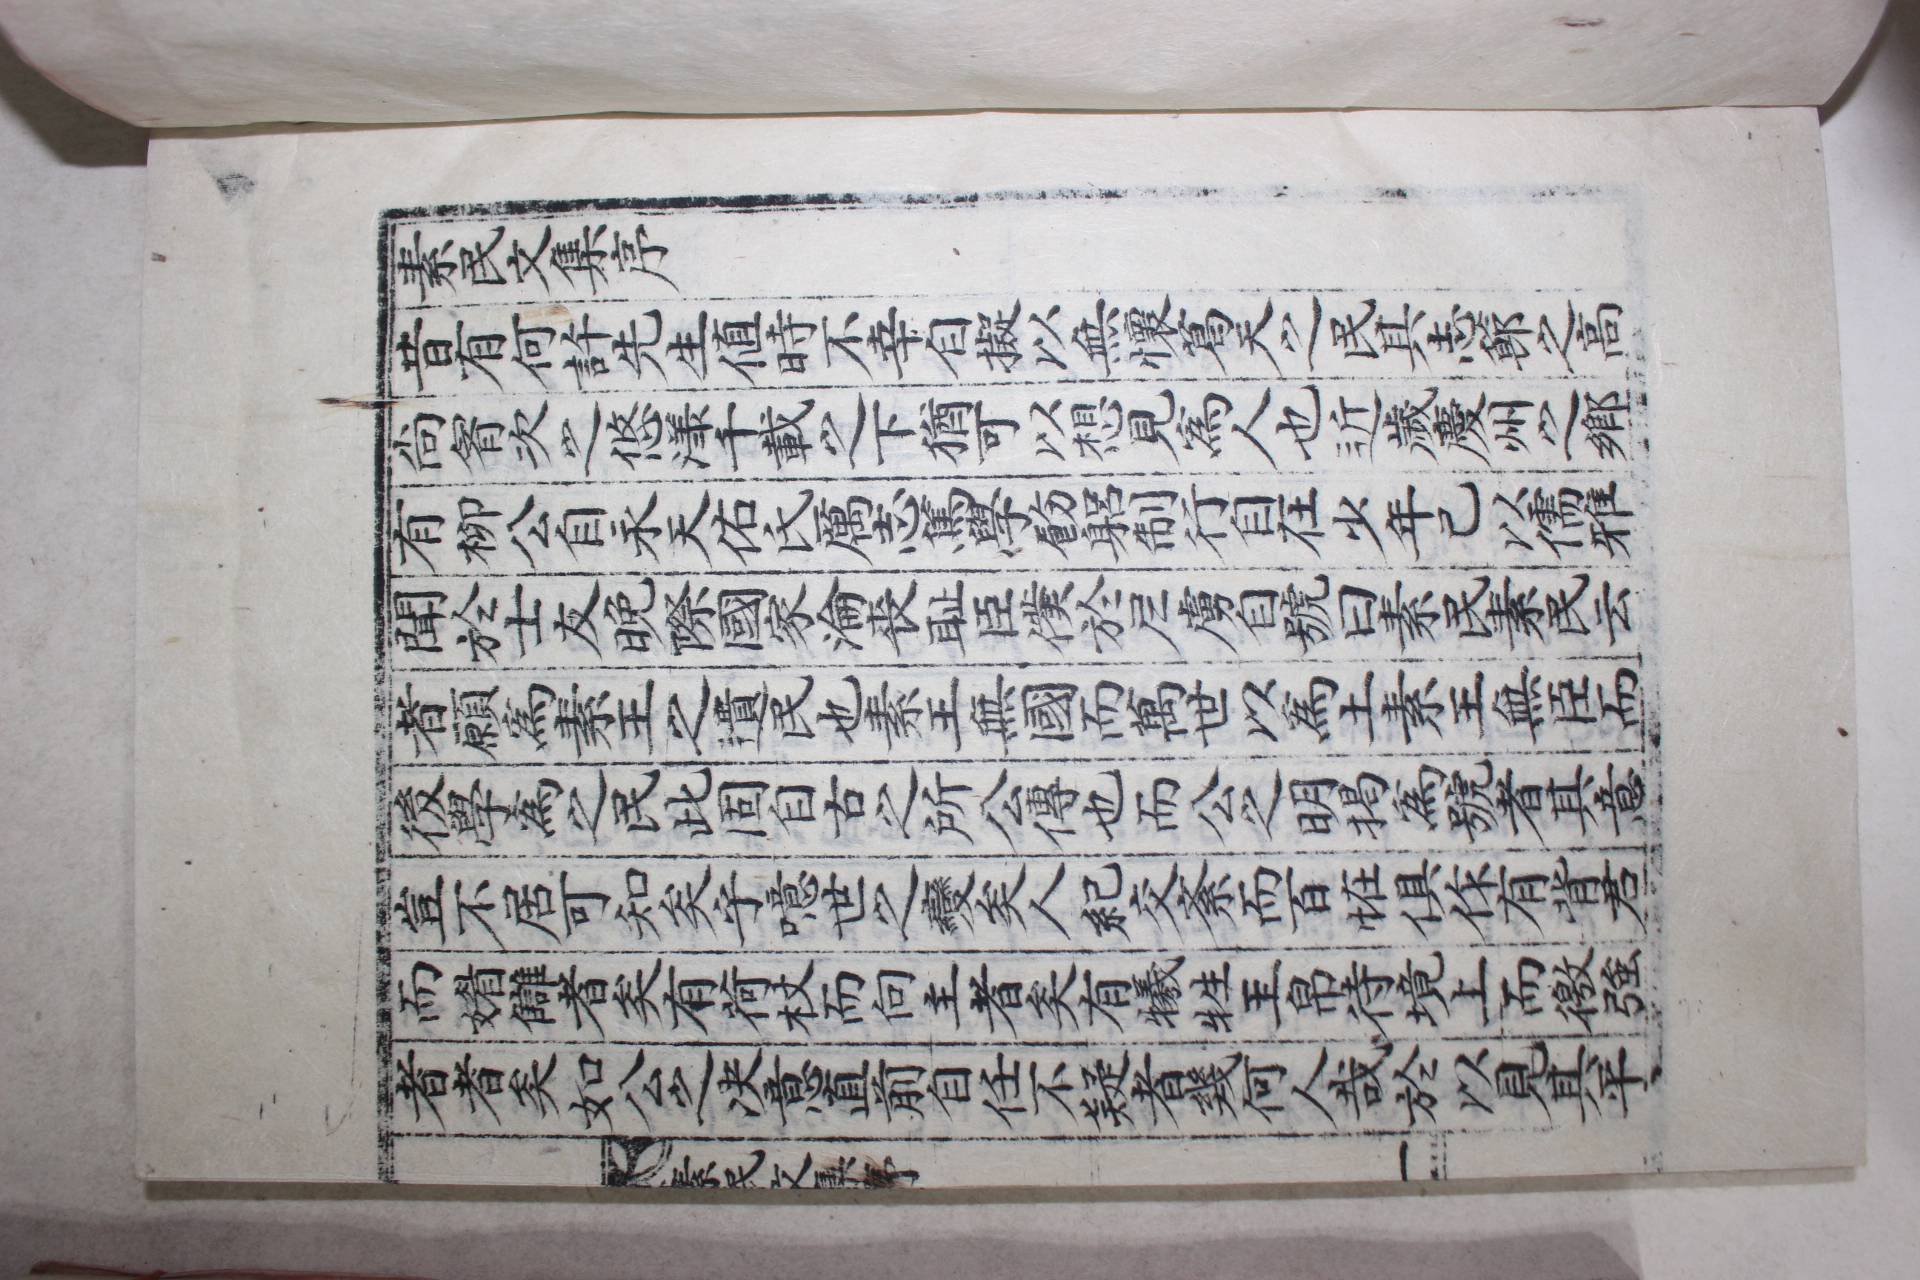 素民文集序
昔有何許先生值時不幸自擬以無懷葛天之民其志節之高
尚胷次之悠漾千載之下猶可以想見爲人也近歲慶州之鄉
有柳公自永天佑氏厲志篤學飭躬制行自在少年已以儒雅
聞於士友晚際國家淪喪耻臣僕於已虜自號曰素民素民云
者願爲素王之遺民也素王無國而萬世以爲土素王無臣而
後學爲之民此固自古之所公傳也而公之明揭爲號者其意
豈不居可知矣乎噫世之變矣人紀交紊而百恠俱作有背君
而媚讎者矣有荷杖而向主者矣有犧牲玉帛待境上而徼強
者者矣如公之决意直前自任不疑者幾何人哉於以見其平
素民文集序 一